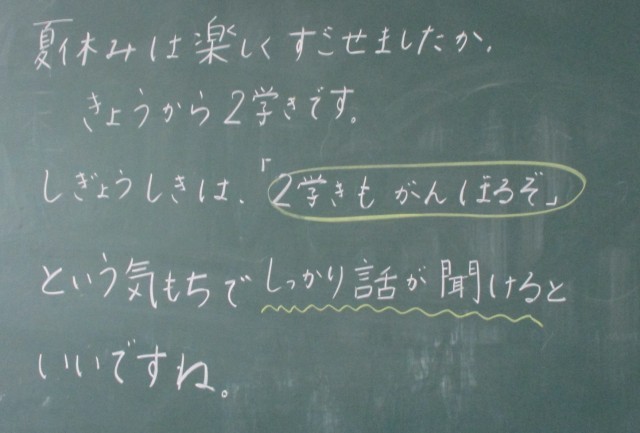 夏休みは楽しくすごせましたか。
きょうから2学きです。
しぎょうしきは、「2学きもがんばるぞ」
という気もちでしっかり話が聞けると
いいですね。